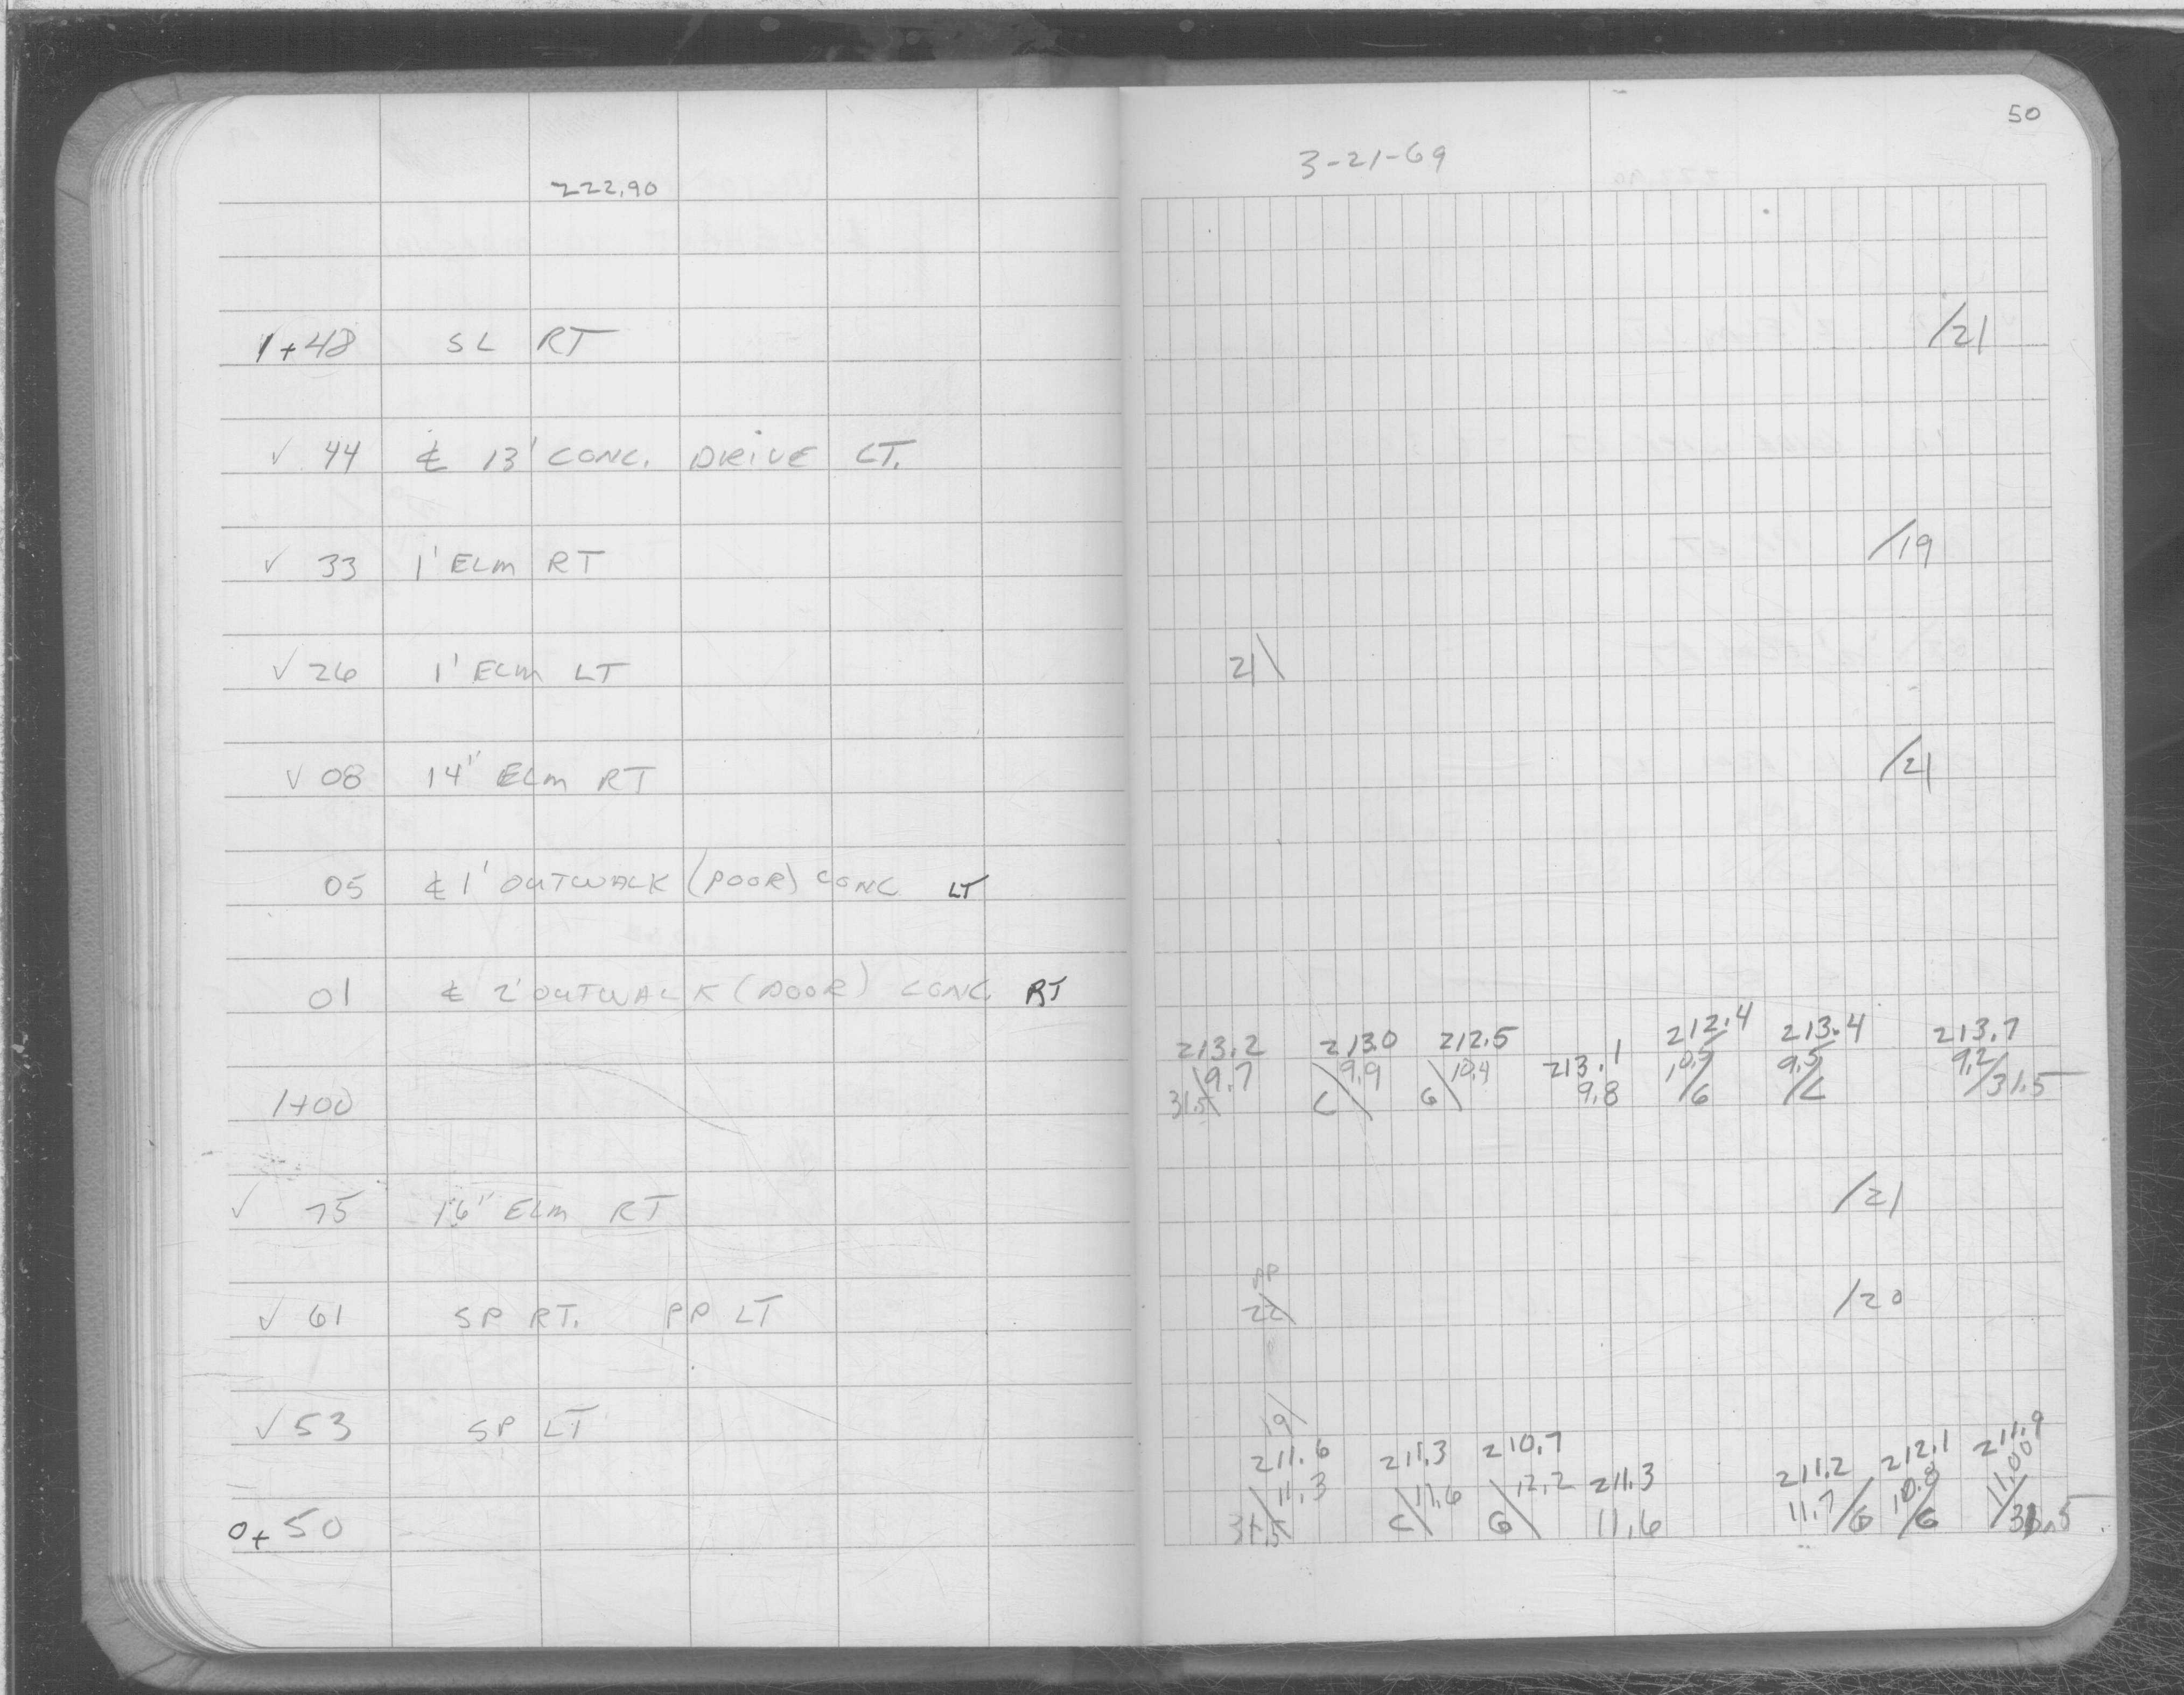 50
3-21-69
222.90
1+48 SL RT /21
✓ 44 ℄ 13' CONC. DRIVE LT.
✓ 33 1' ELM RT /19
✓ 26 1' ELM LT 21\
✓ 08 14" ELM RT /21
05 ℄ 1' OUTWALK (POOR) CONC LT
01 ℄ 2' OUTWALK (POOR) CONC. RT
213.2 213.0 212.5 213.1 212.4 213.4 213.7
9.7 9.9 10.4 9.8 10.5 9.5 9.2
1+00 31.5\ L\ G\ /G /L /31.5
✓ 75 16" ELM RT /21
PP
✓ 61 SP RT. PP LT 22\ /20
✓ 53 SP LT 19\
211.6 211.3 210.7 211.3 211.2 212.1 211.9
11.3 11.6 12.2 11.6 11.7 10.8 11.00
0+50 31.5\ L\ G\ /G /G /31.5